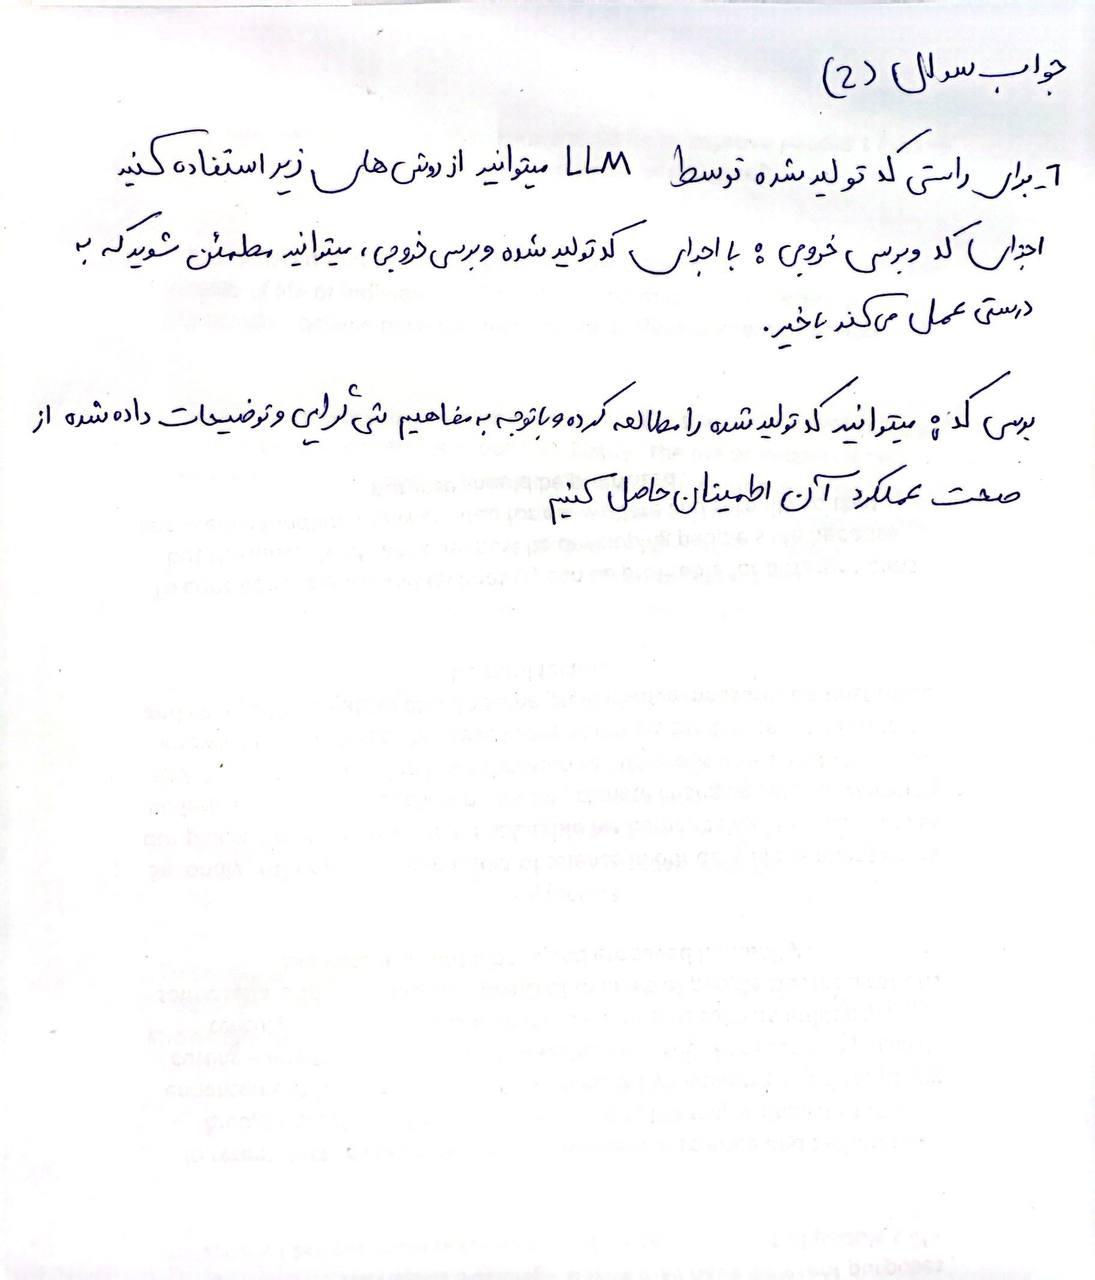 جواب سوال (2)
1- برای راستی کد تولید شده توسط LLM میتوانید از روش های زیر استفاده کنید
اجرای کد و بررسی خروجی : با اجرای کد تولید شده و بررسی خروجی، میتوانید مطمئن شوید که به
درستی عمل می کند یا خیر.
بررسی کد : میتوانید کد تولید شده را مطالعه کرده و با توجه به مفاهیم شی گرایی و توضیحات داده شده از
صحت عملکرد آن اطمینان حاصل کنیم